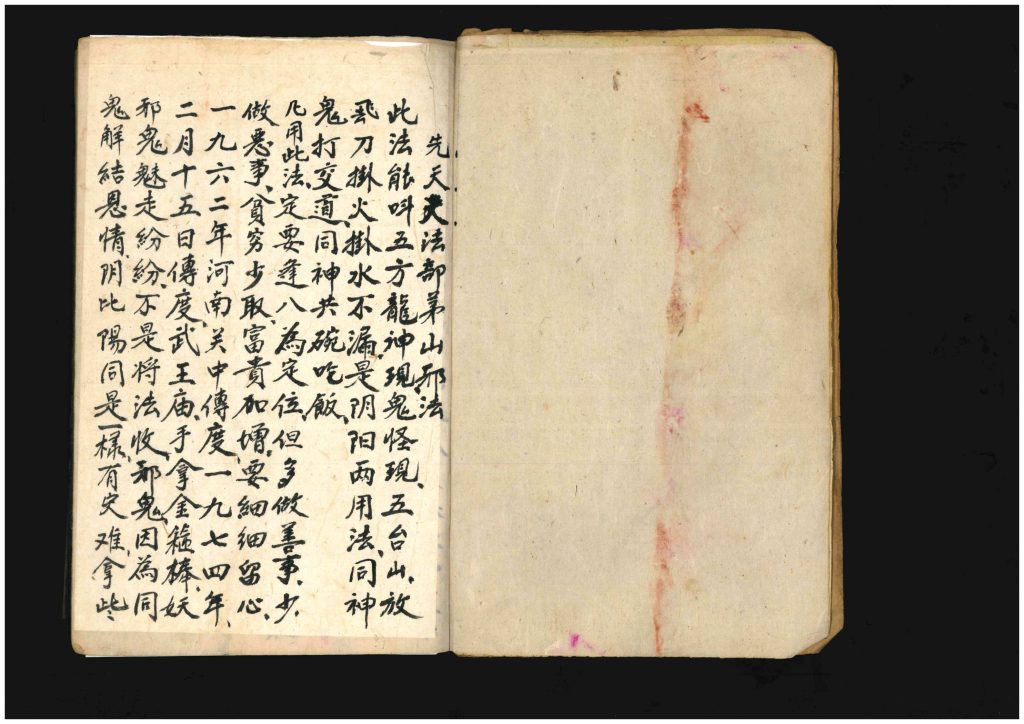 先天夫法部苐山邪法
此法能呌五方龍神現鬼怪現、五台山、放
飛刀掛火掛水不漏、是阴阳两用法、同神
鬼打交道、同神共碗吃飯、
凡用此法、定要逢八為定位、但多做善事、少
做惡事、貧穷少取、富貴加增、要細細留心、
一九六二年河南关中傳度、一九七四年、
二月十五日傳度、武王庙、手拿金箍棒、妖
邪鬼魅走紛紛、不是将法收邪鬼、因為同
鬼解結恩情、阴比陽同是一樣、有灾难、拿些